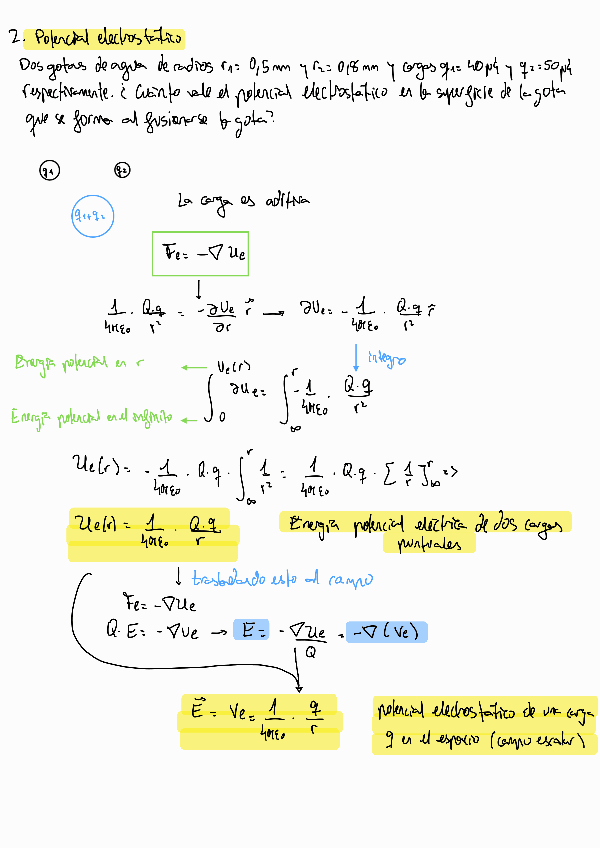 2. Potencial electrostático
Dos gotas de agua de radios r1= 0,5mm y r2= 0,8mm y cargas q1= 40 y q2=50
respectivamente. ¿Cuánto vale el potencial electrostático en la superficie de la gota
que se forma al fusionarse la gota?
q1 q2
q1+q2
La carga es aditiva
Fe= -∇Ue
1/4πε0 · Q·q/r² = -∂Ue/∂r r⃗ → ∂Ue= - 1/4πε0 · Q·q/r² r̂
integro
Energía potencial en r ← Ue(r)
∫ ∂Ue= ∫ -1/4πε0 · Q·q/r²
Energía potencial en el infinito ← 0 ∞ r
Ue(r)= - 1/4πε0 · Q·q · ∫∞^r 1/r² = 1/4πε0 · Q·q · [1/r]∞^r =>
Ue(r)= 1/4πε0 · Q·q/r Energía potencial eléctrica de dos cargas
puntuales
↓ trasladando esto al campo
Fe= -∇Ue
Q·E= -∇Ue → E= -∇Ue/Q = -∇(Ve)
E⃗ = Ve= 1/4πε0 · q/r potencial electrostático de una carga
q en el espacio (campo escalar)